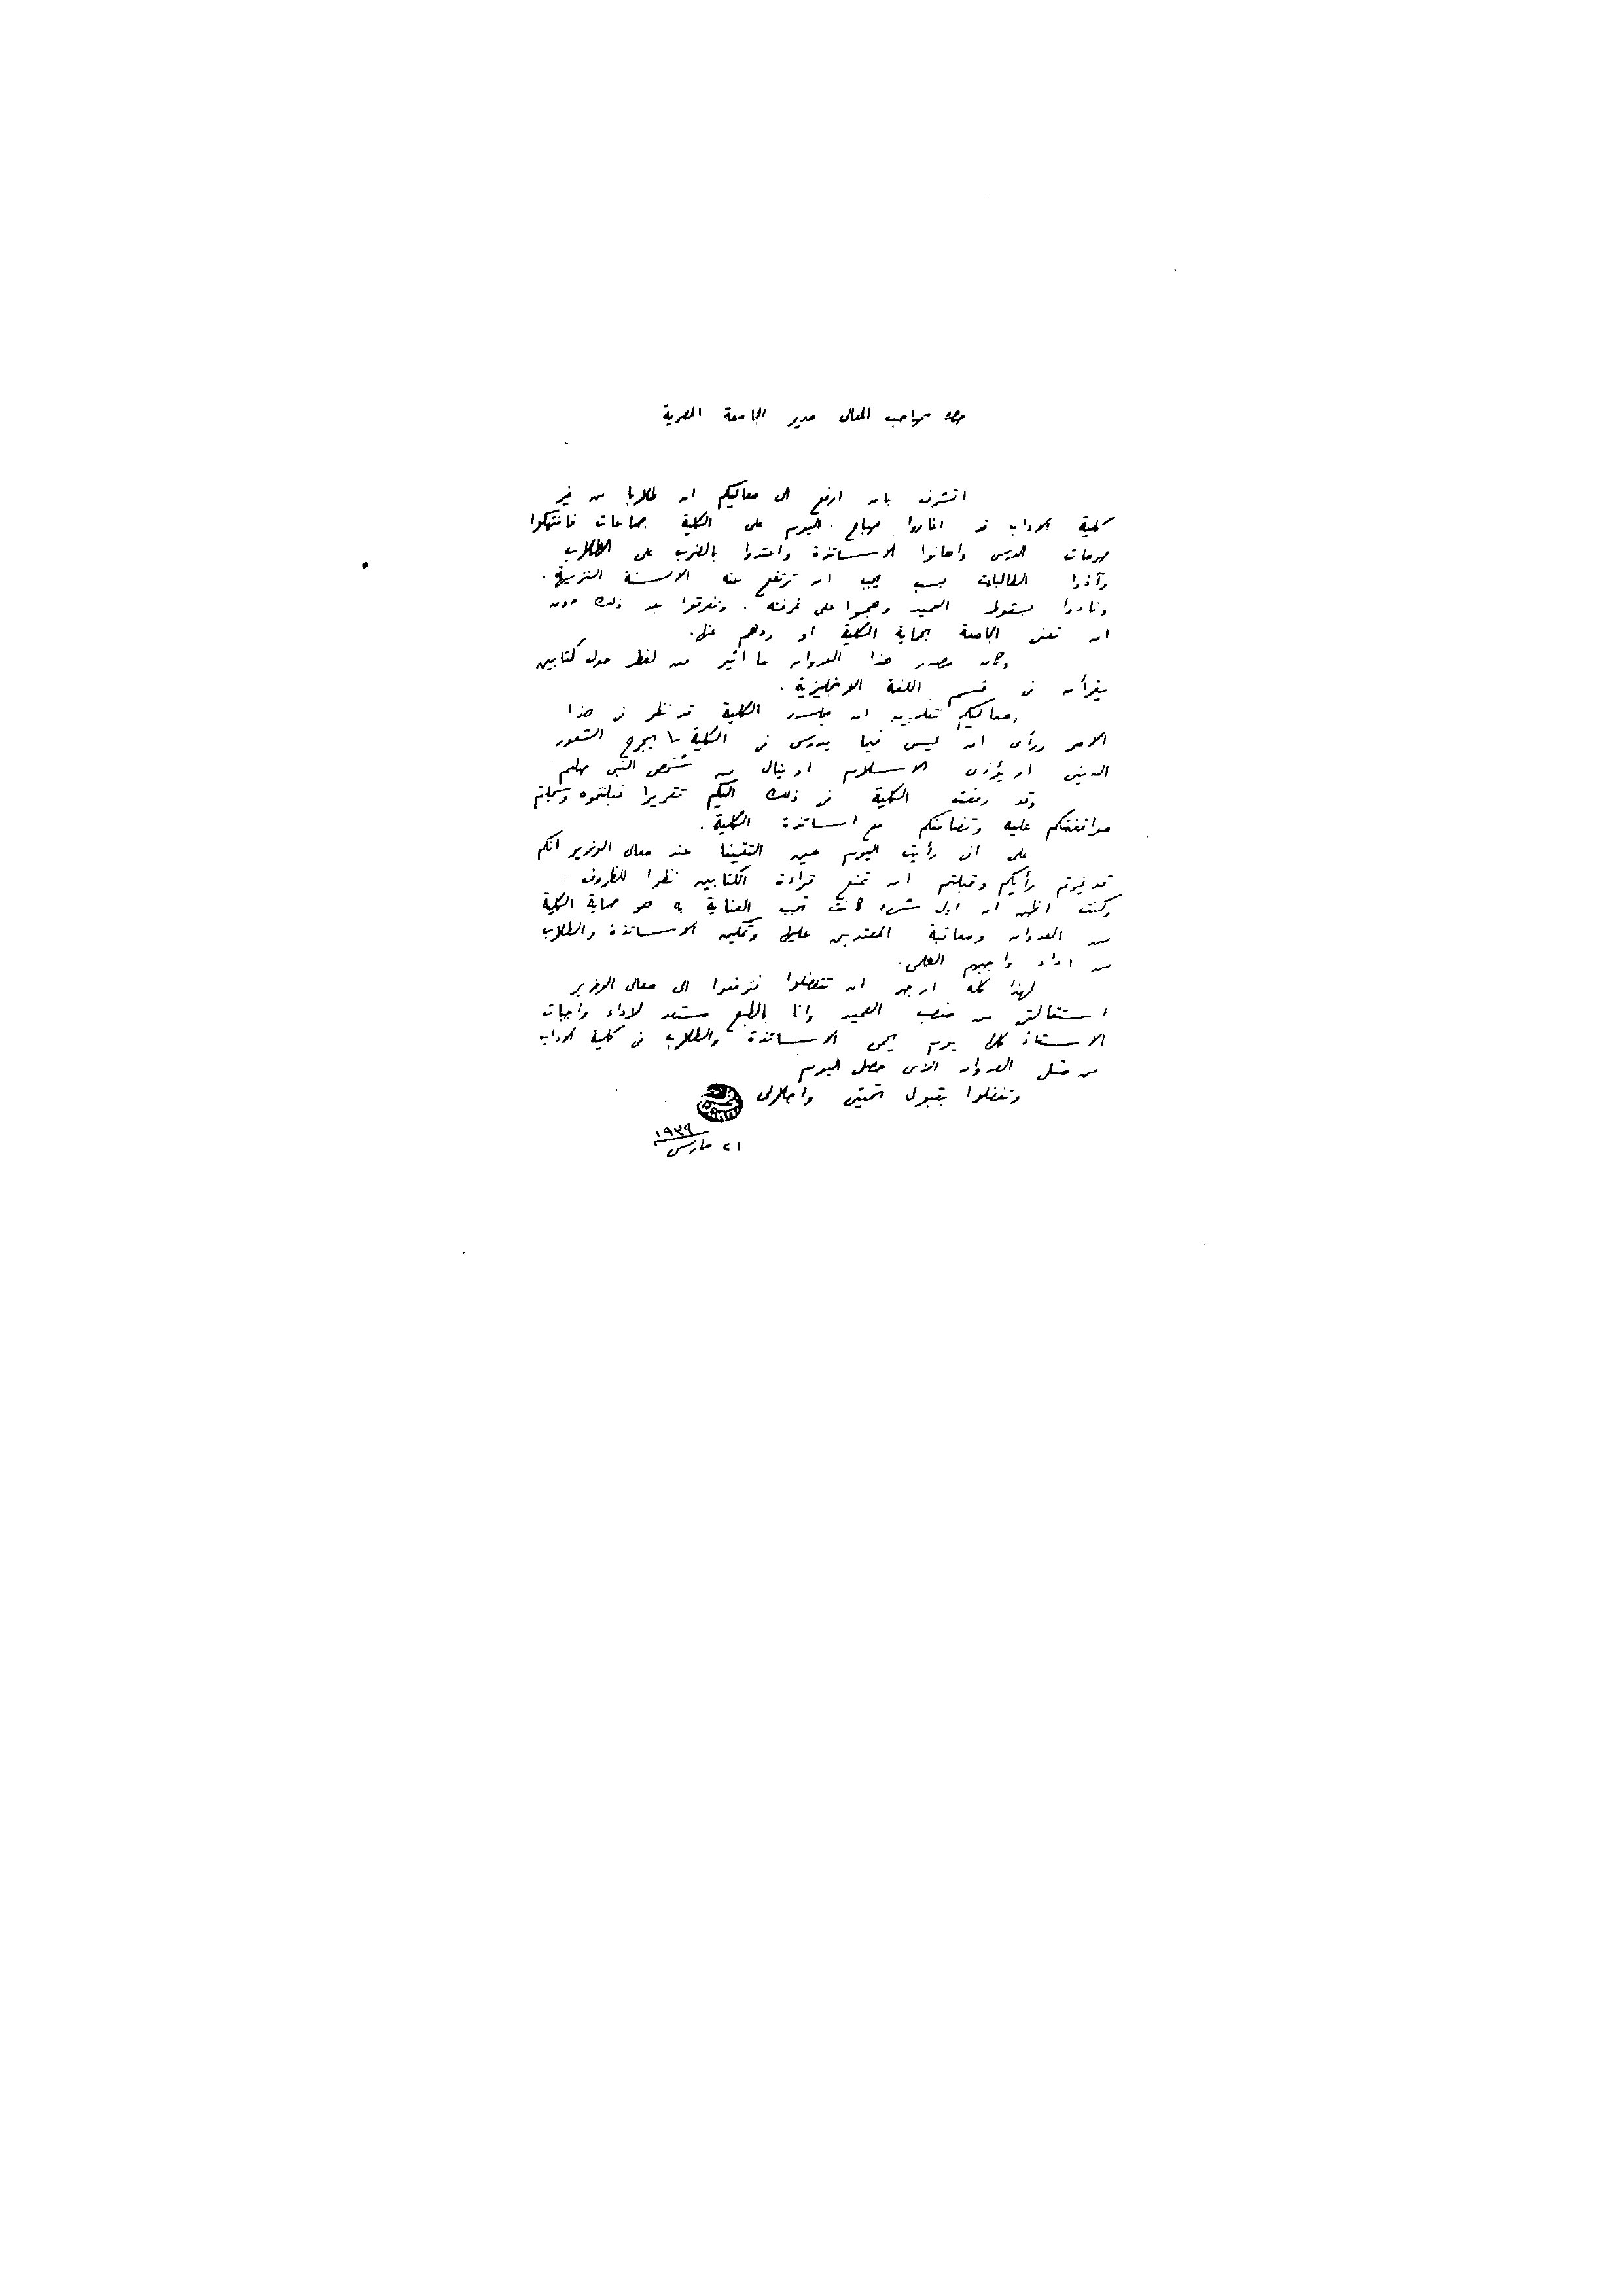 حضرة صاحب المعالى مدير الجامعة المصرية
اتشرف بان ارفع الى معاليكم ان طلابا من غير
كلية الاداب قد اغاروا صباح اليوم على الكلية جماعات فانتهكوا
حرمات الدرس واهانوا الاساتذة واعتدوا بالضرب على الطلاب
وآذوا الطالبات بسب يجب ان ترتفع عنه الالسنة النزيهة.
ونادوا بسقوط العميد وهجموا على غرفته. وتفرقوا بعد ذلك دون
ان تعنى الجامعة بحماية الكلية او ردهم عنها.
وكان مصدر هذا العدوان ما اثير من لغط حول كتابين
يقرأان فى قسم اللغة الانجليزية.
ومعاليكم تعلمون ان مجلس الكلية قد نظر فى هذا
الامر ورأى ان ليس فيما يدرس فى الكلية ما يجرح الشعور
الدينى او يؤذى الاسلام او ينال من شخص النبى صلعم
وقد رفعت الكلية فى ذلك اليكم تقريرا فقبلتموه وسجلتم
موافقتكم عليه وتضامنكم مع اساتذة الكلية.
على انى رأيت اليوم حين التقينا عند معالى الوزير انكم
قد غيرتم رأيكم وقبلتم ان تمنع قراءة الكتابين نظرا للظروف.
وكنت اظن ان اول شىء كانت تجب العناية به هو حماية الكلية
من العدوان ومعاقبة المعتدين عليها وتمكين الاساتذة والطلاب
من اداء واجبهم العلمى.
لهذا كله ارجو ان تتفضلوا فترفعوا الى معالى الوزير
استقالتى من منصب العميد وانا بالطبع مستعد لاداء واجبات
الاستاذ كل يوم يحمى الاساتذة والطلاب فى كلية الاداب
من مثل العدوان الذى حصل اليوم
وتفضلوا بقبول تحيتى واجلالى
١٩٣٩
٢١ مارس